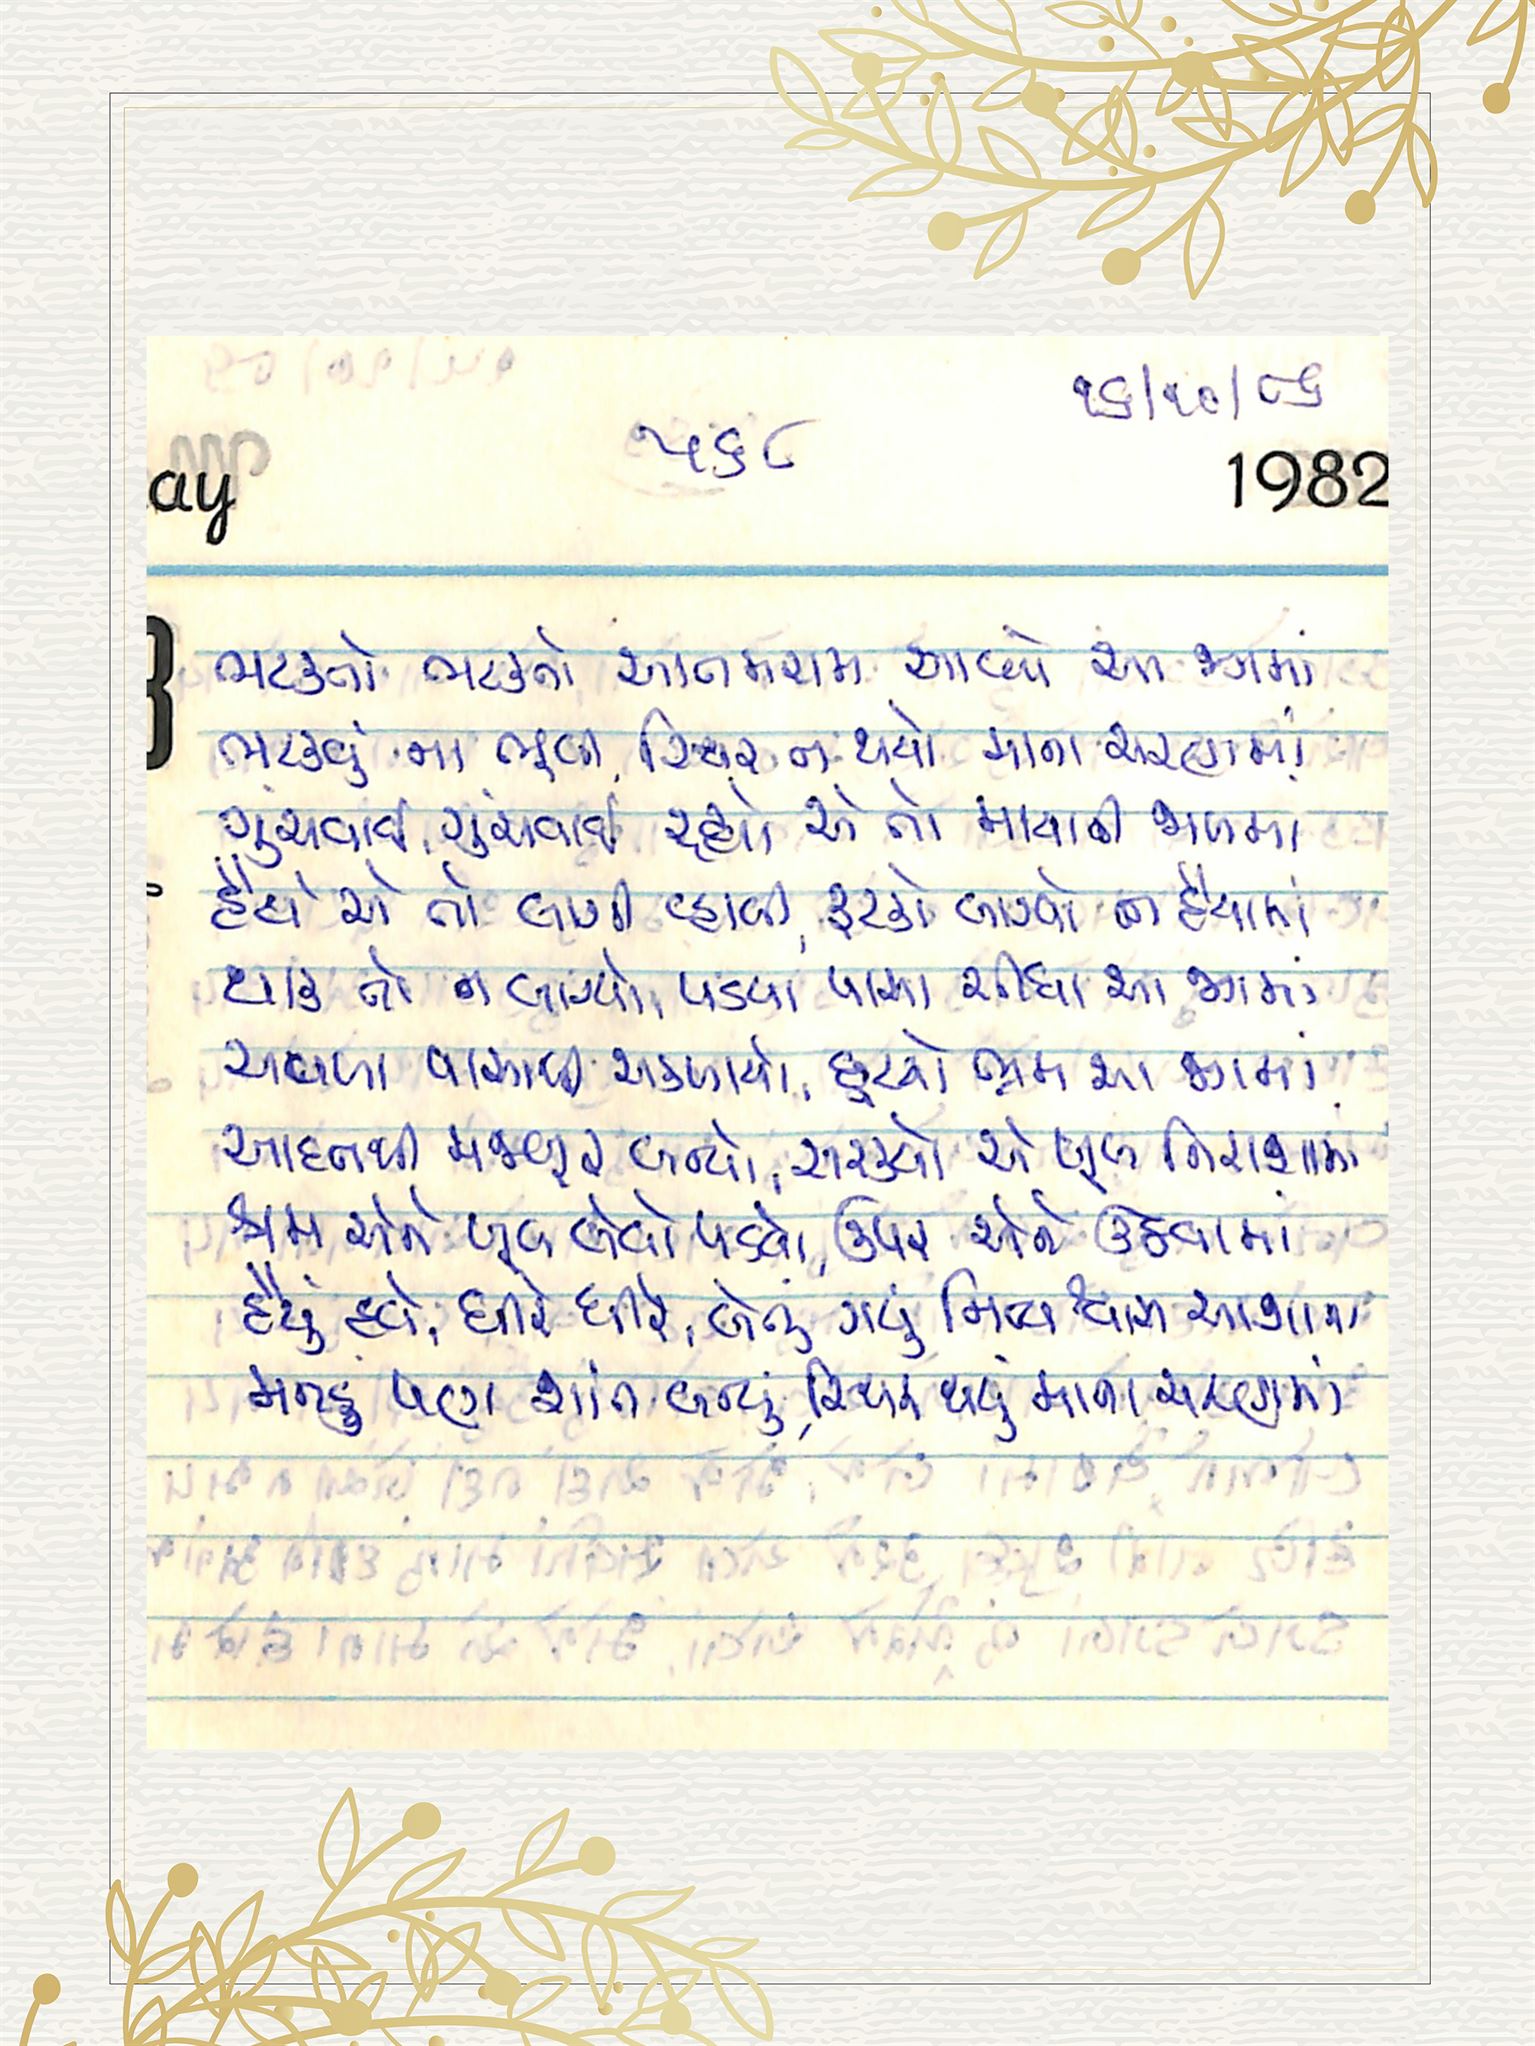 ૧૬/૧૦/૮૬
૫૬૮
ay
1982
ભટકતો ભટકતો આતમરામ આવ્યો આ જગમાં
ભટકવું ના ભૂલી, સ્થિર ન થયો માના ચરણમાં
ગુંચવાઈ, ગુંચવાઈ રહ્યો એ તો માયાની જાળમાં
હૈયે એ તો લાગી વ્હાલી, ફટકો લાગ્યો ન હૈયામાં
થાક તો ન લાગ્યો, પડયા પાસા સીધા આ જગમાં
અવળા પાસાથી અકળાયો, છૂટયો ભ્રમ આ જગમાં
આદતથી મજબૂર બન્યો, સરક્યો એ ખૂબ નિરાશામાં
શ્રમ એને ખૂબ લેવો પડયો, ઉપર એને ઉઠવામાં
હૈયું હવે, ધીરે ધીરે, બનતું ગયું નિત્ય આશામાં
મનડું પણ શાંત બન્યું, સ્થિર થયું માના ચરણમાં